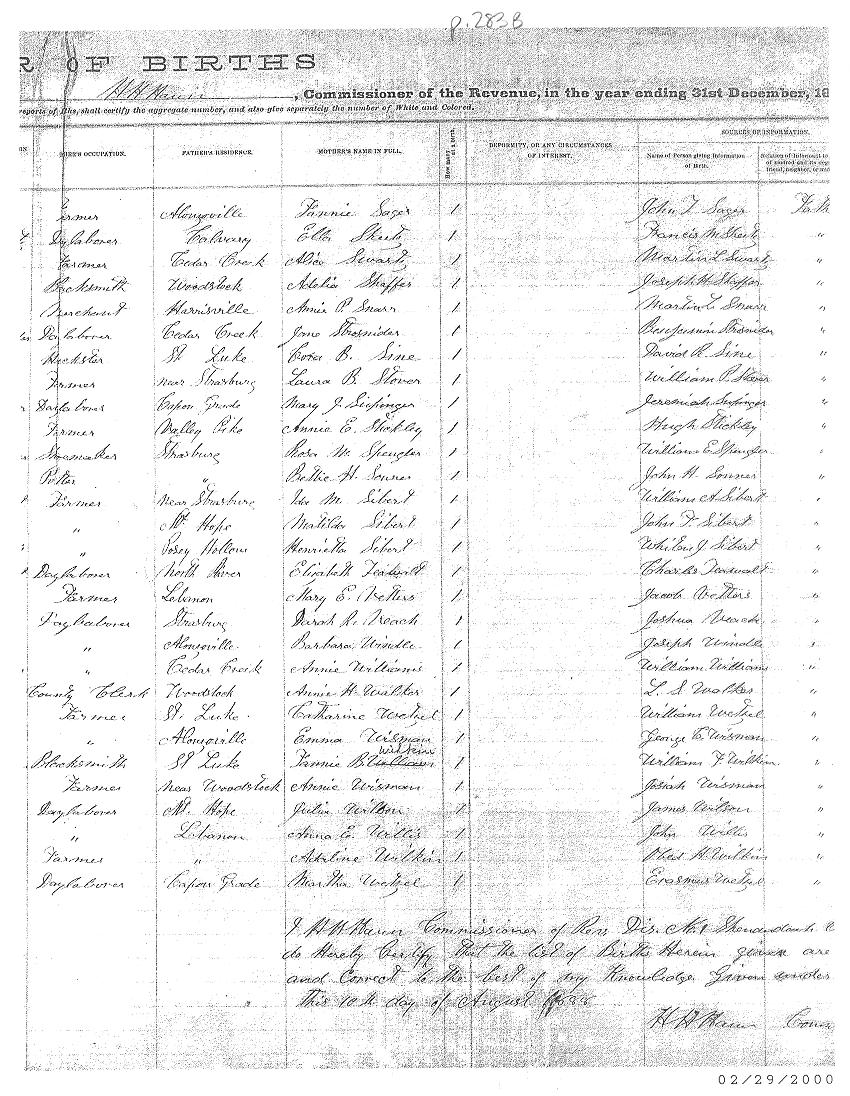 p. 283B
R OF BIRTHS
H H Haun, Commissioner of the Revenue, in the year ending 31st December, 18
reports of Births, shall certify the aggregate number, and also give separately the number of White and Colored.
FATHER'S OCCUPATION. FATHER'S RESIDENCE. MOTHER'S NAME IN FULL. HOW MANY AT A BIRTH. DEFORMITY, OR ANY CIRCUMSTANCES OF INTEREST. SOURCES OF INFORMATION.
Name of Person giving Information of Birth. Relation of Informant to
friend, neighbor, or
Farmer Alonzoville Fannie Sager 1 John T. Sager Fath
Daylaborer Calvary Ella Sheetz 1 Francis M Sheetz "
Farmer Cedar Creek Alice Swartz 1 Martin L Swartz "
Blacksmith Woodstock Adelia Shaffer 1 Joseph H Shaffer "
Merchant Harrisville Annie P. Snarr 1 Martin L Snarr "
Daylaborer Cedar Creek Jane Strosnider 1 Benjamin Strosnider "
Huckster St Luke Cora B. Sine 1 David R. Sine "
Farmer near Strasburg Laura B. Stover 1 William P. Stover "
Daylaborer Capon Grade Mary J. 1 Jeremiah "
Farmer Valley Pike Annie E. Stickley 1 Hugh Stickley "
Shoemaker Strasburg Rosa M. Spengler 1 William E Spengler "
Potter " Bettie H. Sonner 1 John H. Sonner "
Farmer near Strasburg Ida M. Sibert 1 William A Sibert "
" Mt Hope Matilda Sibert 1 John F. Sibert "
" Posey Hollow Henrietta Sibert 1 J Sibert "
Daylaborer North River Elizabeth 1 Charles "
Farmer Lebanon Mary E. Vetters 1 Jacob Vetters "
Daylaborer Strasburg Sarah R. Veach 1 Joshua Veach "
" Alonzoville Barbara Windle 1 Joseph Windle "
" Cedar Creek Annie Williams 1 William Williams "
County Clerk Woodstock Annie H. Walker 1 L. S. Walker "
Farmer St. Luke Catharine Wetzel 1 William Wetzel "
" Alonzoville Emma Wisman 1 George C. Wisman "
Wilkin
Blacksmith St Luke Fannie B William 1 William F. Wilkin "
Farmer near Woodstock Annie Wisman 1 Josiah Wisman "
Daylaborer Mt. Hope Julia Wilson 1 James Wilson "
" Lebanon Anna E. Willis 1 John Willis "
Farmer " Adeline Wilkin 1 Obed H. Wilkin "
Daylaborer Capon Grade Martha Wetzel 1 Erasmus Wetzel "
I H H Haun Commissioner of Rev Dis. No 1 Shenandoah
do Hereby Certify that the list of Births Herein given are
and Correct to the best of my Knowledge Given under
this 10th day of August
H H Haun Com
02/29/2000